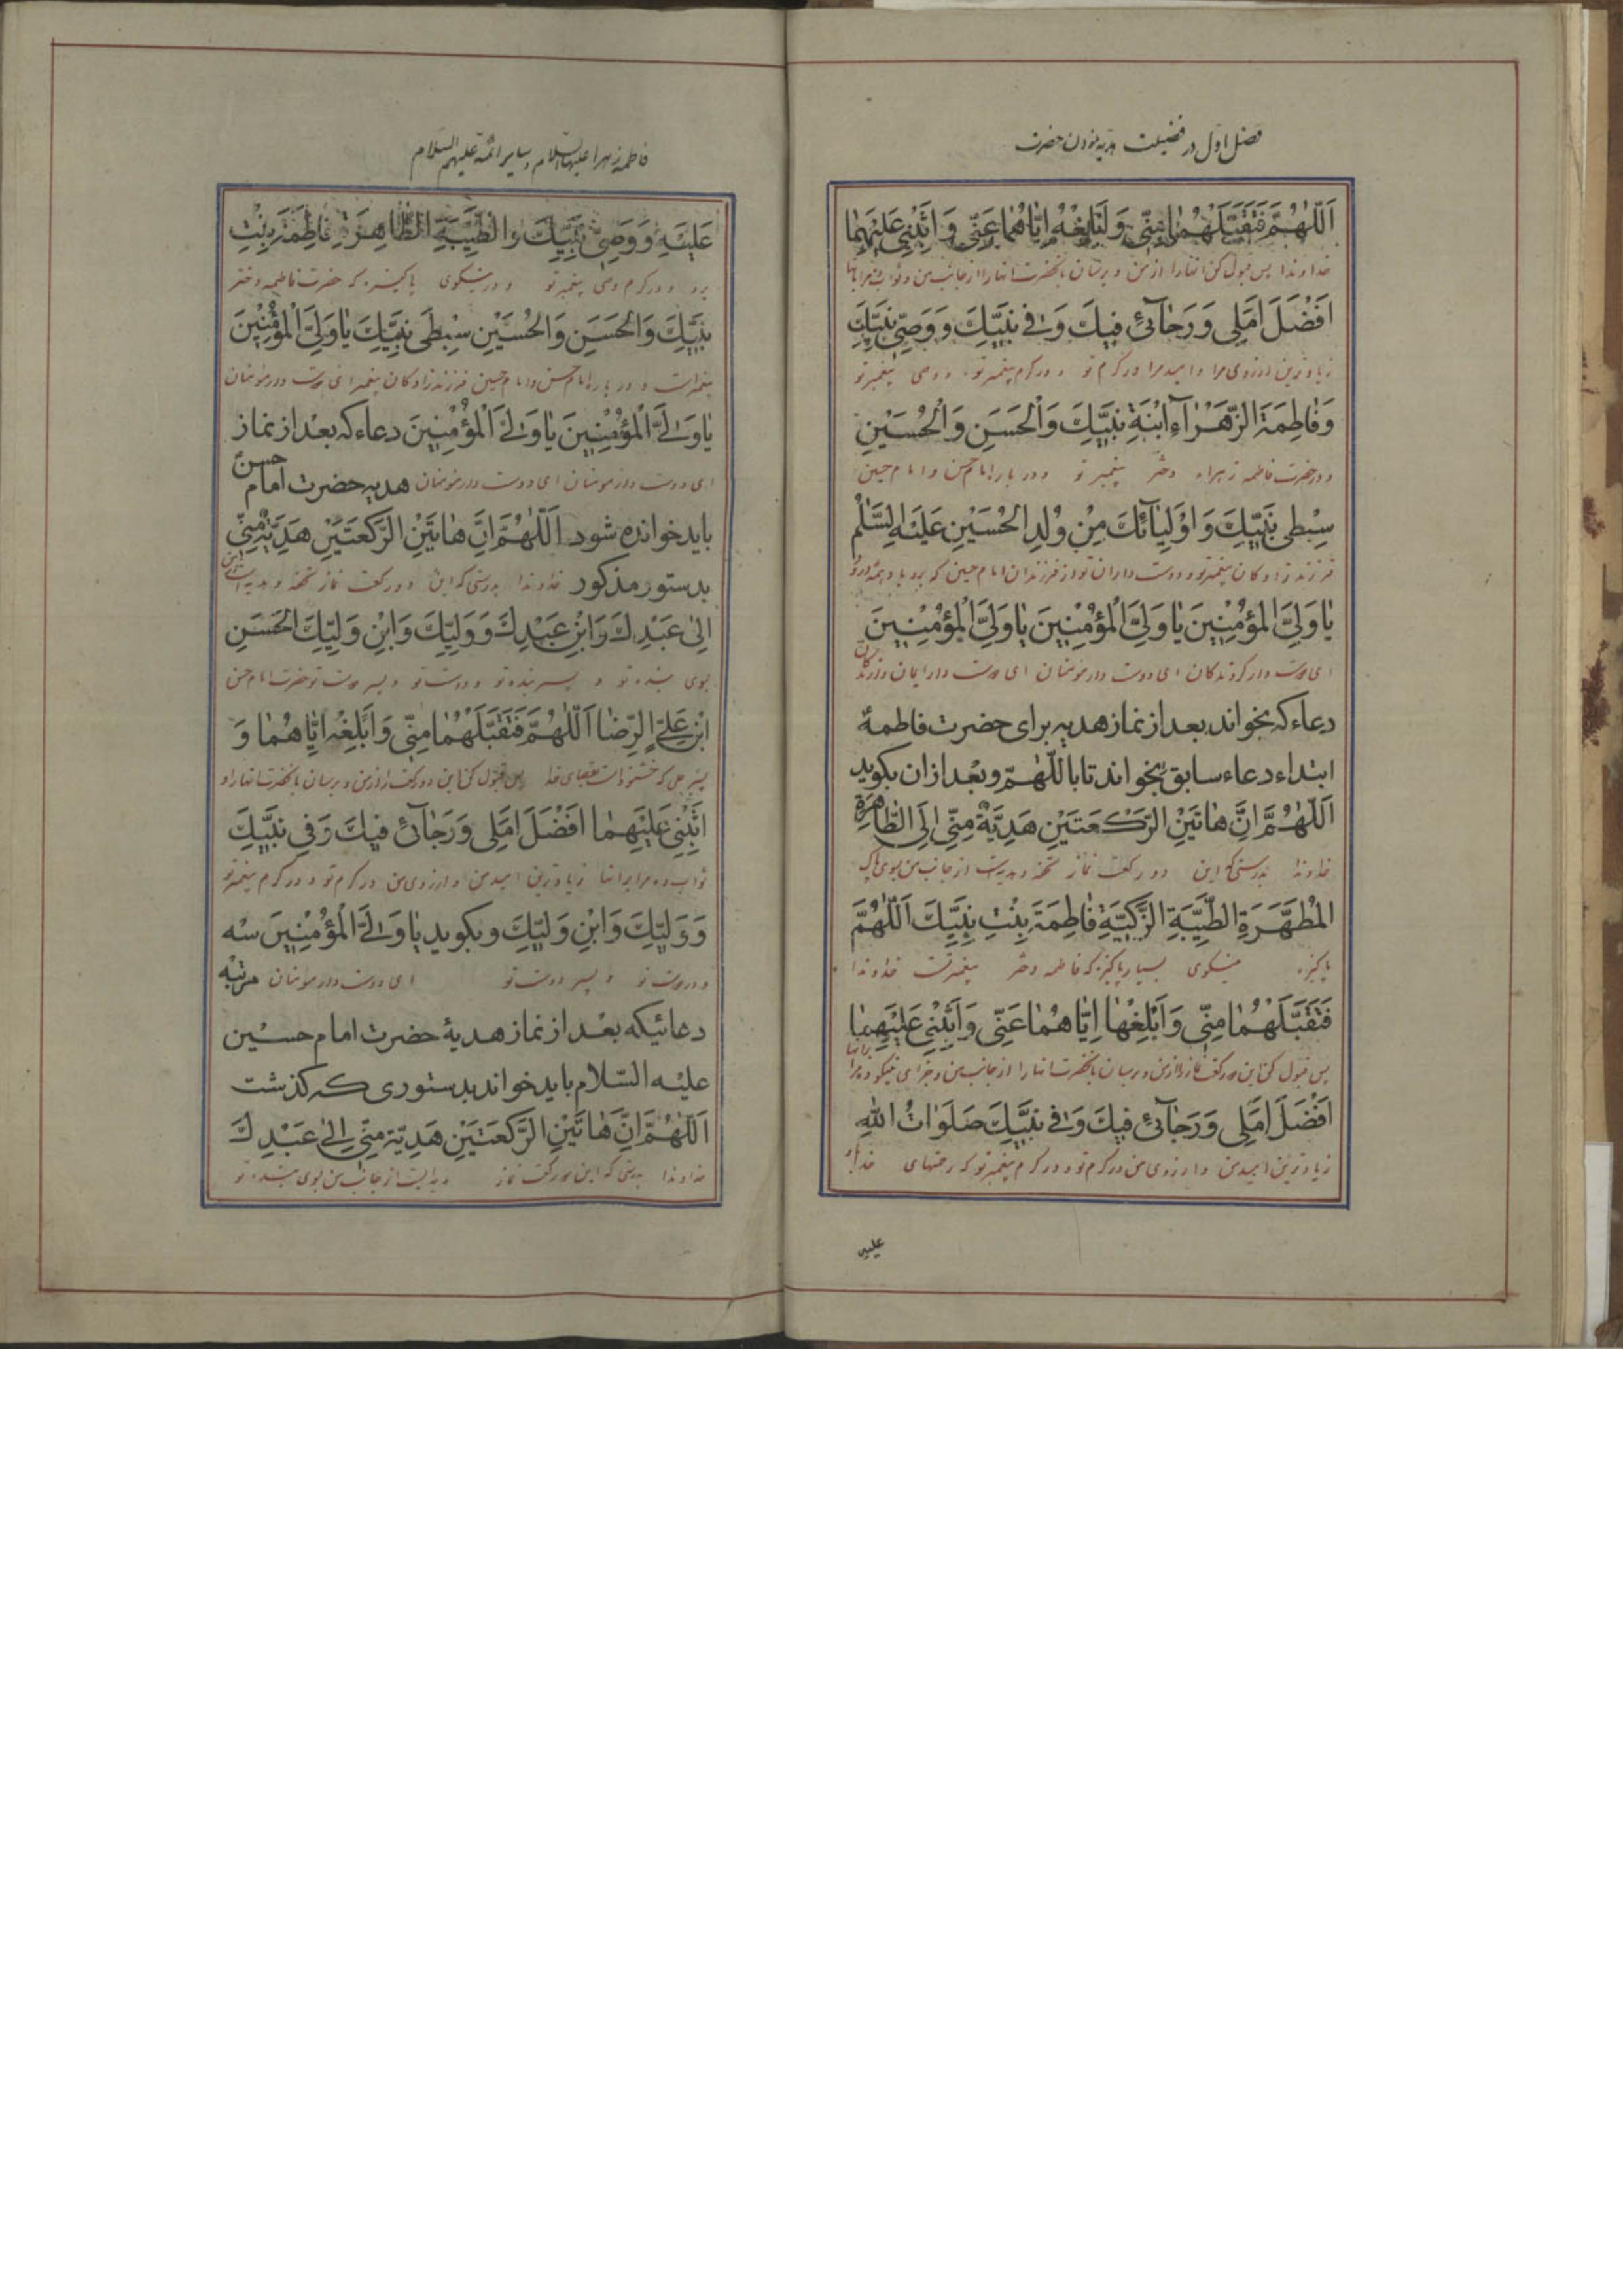 فصل اول در فضیلت هدیه نمودن حضرت
اَللّهُمَّ فَتَقَبَّلْهُمٰا مِنّی وَاَبْلِغْهُ اِیّٰاهُمٰا عَنّی وَ اَثِبْنی عَلَیْهِمٰا
خداوندا پس قبول کن انها را از من و برسان بانحضرت انها را از جانب من و ثواب ده مرا بانها
اَفْضَلَ اَمَلی وَ رَجٰآئی فیكَ وَ فی نَبِیِّكَ وَ وَصِیِّ نَبِیِّكَ
زیادترین ارزوی مرا و امید مرا در کرم تو و در کرم پیغمبر تو و وصی پیغمبر تو
وَ فٰاطِمَةَ الزَّهْرٰآءِ ابْنَةِ نَبِیِّكَ وَالْحَسَنِ وَ الْحُسَیْنِ
و در حضرت فاطمه زهراء دختر پیغمبر تو و در باره امام حسن و امام حسین
سِبْطَیْ نَبِیِّكَ وَ اَوْلِیٰآئِكَ مِنْ وُلْدِ الْحُسَیْنِ عَلَیْهِ السَّلٰمُ
فرزندزادکان پیغمبر تو و دوست داران تو از فرزندان امام حسین که بر او باد
یٰا وَلِیَّ الْمُؤْمِنینَ یٰا وَلِیَّ الْمُؤْمِنینَ یٰا وَلِیَّ الْمُؤْمِنینَ
ای دوست دار کروندکان ای دوست دار مؤمنان ای دوست دار ایمان
دعاء که بخواند بعد از نماز هدیه برای حضرت فاطمهٔ
ابتداء دعاء سابق بخواند تا بااللّهمّ و بعد از ان بکوید
اَللّهُمَّ اِنَّ هٰاتَیْنِ الرَّكْعَتَیْنِ هَدِیَّةٌ مِنّی اِلَی الطّٰاهِرَةِ
خداوندا بدرستی که این دو رکعت نماز تحفه و هدیه است از جانب من بسوی پاک
الْمُطَهَّرَةِ الطَّیِّبَةِ الزَّکِیَّةِ فٰاطِمَةَ بِنْتِ نَبِیِّكَ اَللّهُمَّ
پاکیزه نیکوی بسیار پاکیزه که فاطمه دختر پیغمبر تست خداوندا
فَتَقَبَّلْهُمٰا مِنّی وَ اَبْلِغْهٰا اِیّٰاهُمٰا عَنّی وَ اَثِبْنی عَلَیْهِمٰا
پس قبول کن این دو رکعت نماز را از من و برسان بانحضرت انها را از جانب من و جزای نیکو ده مرا بر انها
اَفْضَلَ اَمَلی وَ رَجٰآئی فیكَ وَ فی نَبِیِّكَ صَلَوٰاتُ اللّٰهِ
زیادترین امید من و ارزوی من در کرم تو و در کرم پیغمبر تو که رحمتهای خدا باد
علیه
فاطمه زهرا علیها السلام و سایر ائمه علیهم السلام
عَلَیْهِ وَ وَصِیِّ نَبِیِّكَ وَ الطَّیِّبَةِ الطّٰاهِرَةِ فٰاطِمَةَ بِنْتِ
بر او و در کرم وصی پیغمبر تو و در نیکوی پاکیزه که حضرت فاطمه دختر
نَبِیِّكَ وَالْحَسَنِ وَالْحُسَیْنِ سِبْطَیْ نَبِیِّكَ یٰا وَلِیَّ الْمُؤْمِنینَ
پیغمبر است و در باره امام حسن و امام حسین فرزندزادکان پیغمبر ای دوست دار مؤمنان
یٰا وَلِیَّ الْمُؤْمِنینَ یٰا وَلِیَّ الْمُؤْمِنینَ دعاء که بعد از نماز
ای دوست دار مؤمنان ای دوست دار مؤمنان هدیه حضرت امام حسنؑ
باید خوانده شود اَللّهُمَّ اِنَّ هٰاتَیْنِ الرَّكْعَتَیْنِ هَدِیَّةٌ مِنّی
بدستور مذکور خداوندا بدرستی که این دو رکعت نماز تحفه و هدیه است از من
اِلیٰ عَبْدِكَ وَابْنِ عَبْدِكَ وَ وَلِیِّكَ وَابْنِ وَلِیِّكَ الْحَسَنِ
بسوی بنده تو و پسر بنده تو و دوست تو و پسر دوست تو حضرت امام حسن
ابْنِ عَلِیٍّ الرِّضٰا اَللّهُمَّ فَتَقَبَّلْهُمٰا مِنّی وَ اَبْلِغْهُ اِیّٰاهُمٰا وَ
پسر علی که خشنود است بقضای خدا پس قبول کن این دو رکعت را از من و برسان بانحضرت انها را و
اَثِبْنی عَلَیْهِمٰا اَفْضَلَ اَمَلی وَ رَجٰآئی فیكَ وَ فی نَبِیِّكَ
ثواب ده مرا بر انها زیادترین امید من و ارزوی من در کرم تو و در کرم پیغمبر تو
وَ وَلِیِّكَ وَ ابْنِ وَلِیِّكَ و بکوید یٰا وَلِیَّ الْمُؤْمِنینَ سه
و دوست تو و پسر دوست تو ای دوست دار مؤمنان مرتبه
دعائیکه بعد از نماز هدیهٔ حضرت امام حسین
علیه السّلام باید خواند بدستوری که کذشت
اَللّهُمَّ اِنَّ هٰاتَیْنِ الرَّكْعَتَیْنِ هَدِیَّة مِنّی اِلیٰ عَبْدِكَ
خداوندا بدرستی که این دو رکعت نماز هدیه ایست از جانب من بسوی بنده تو